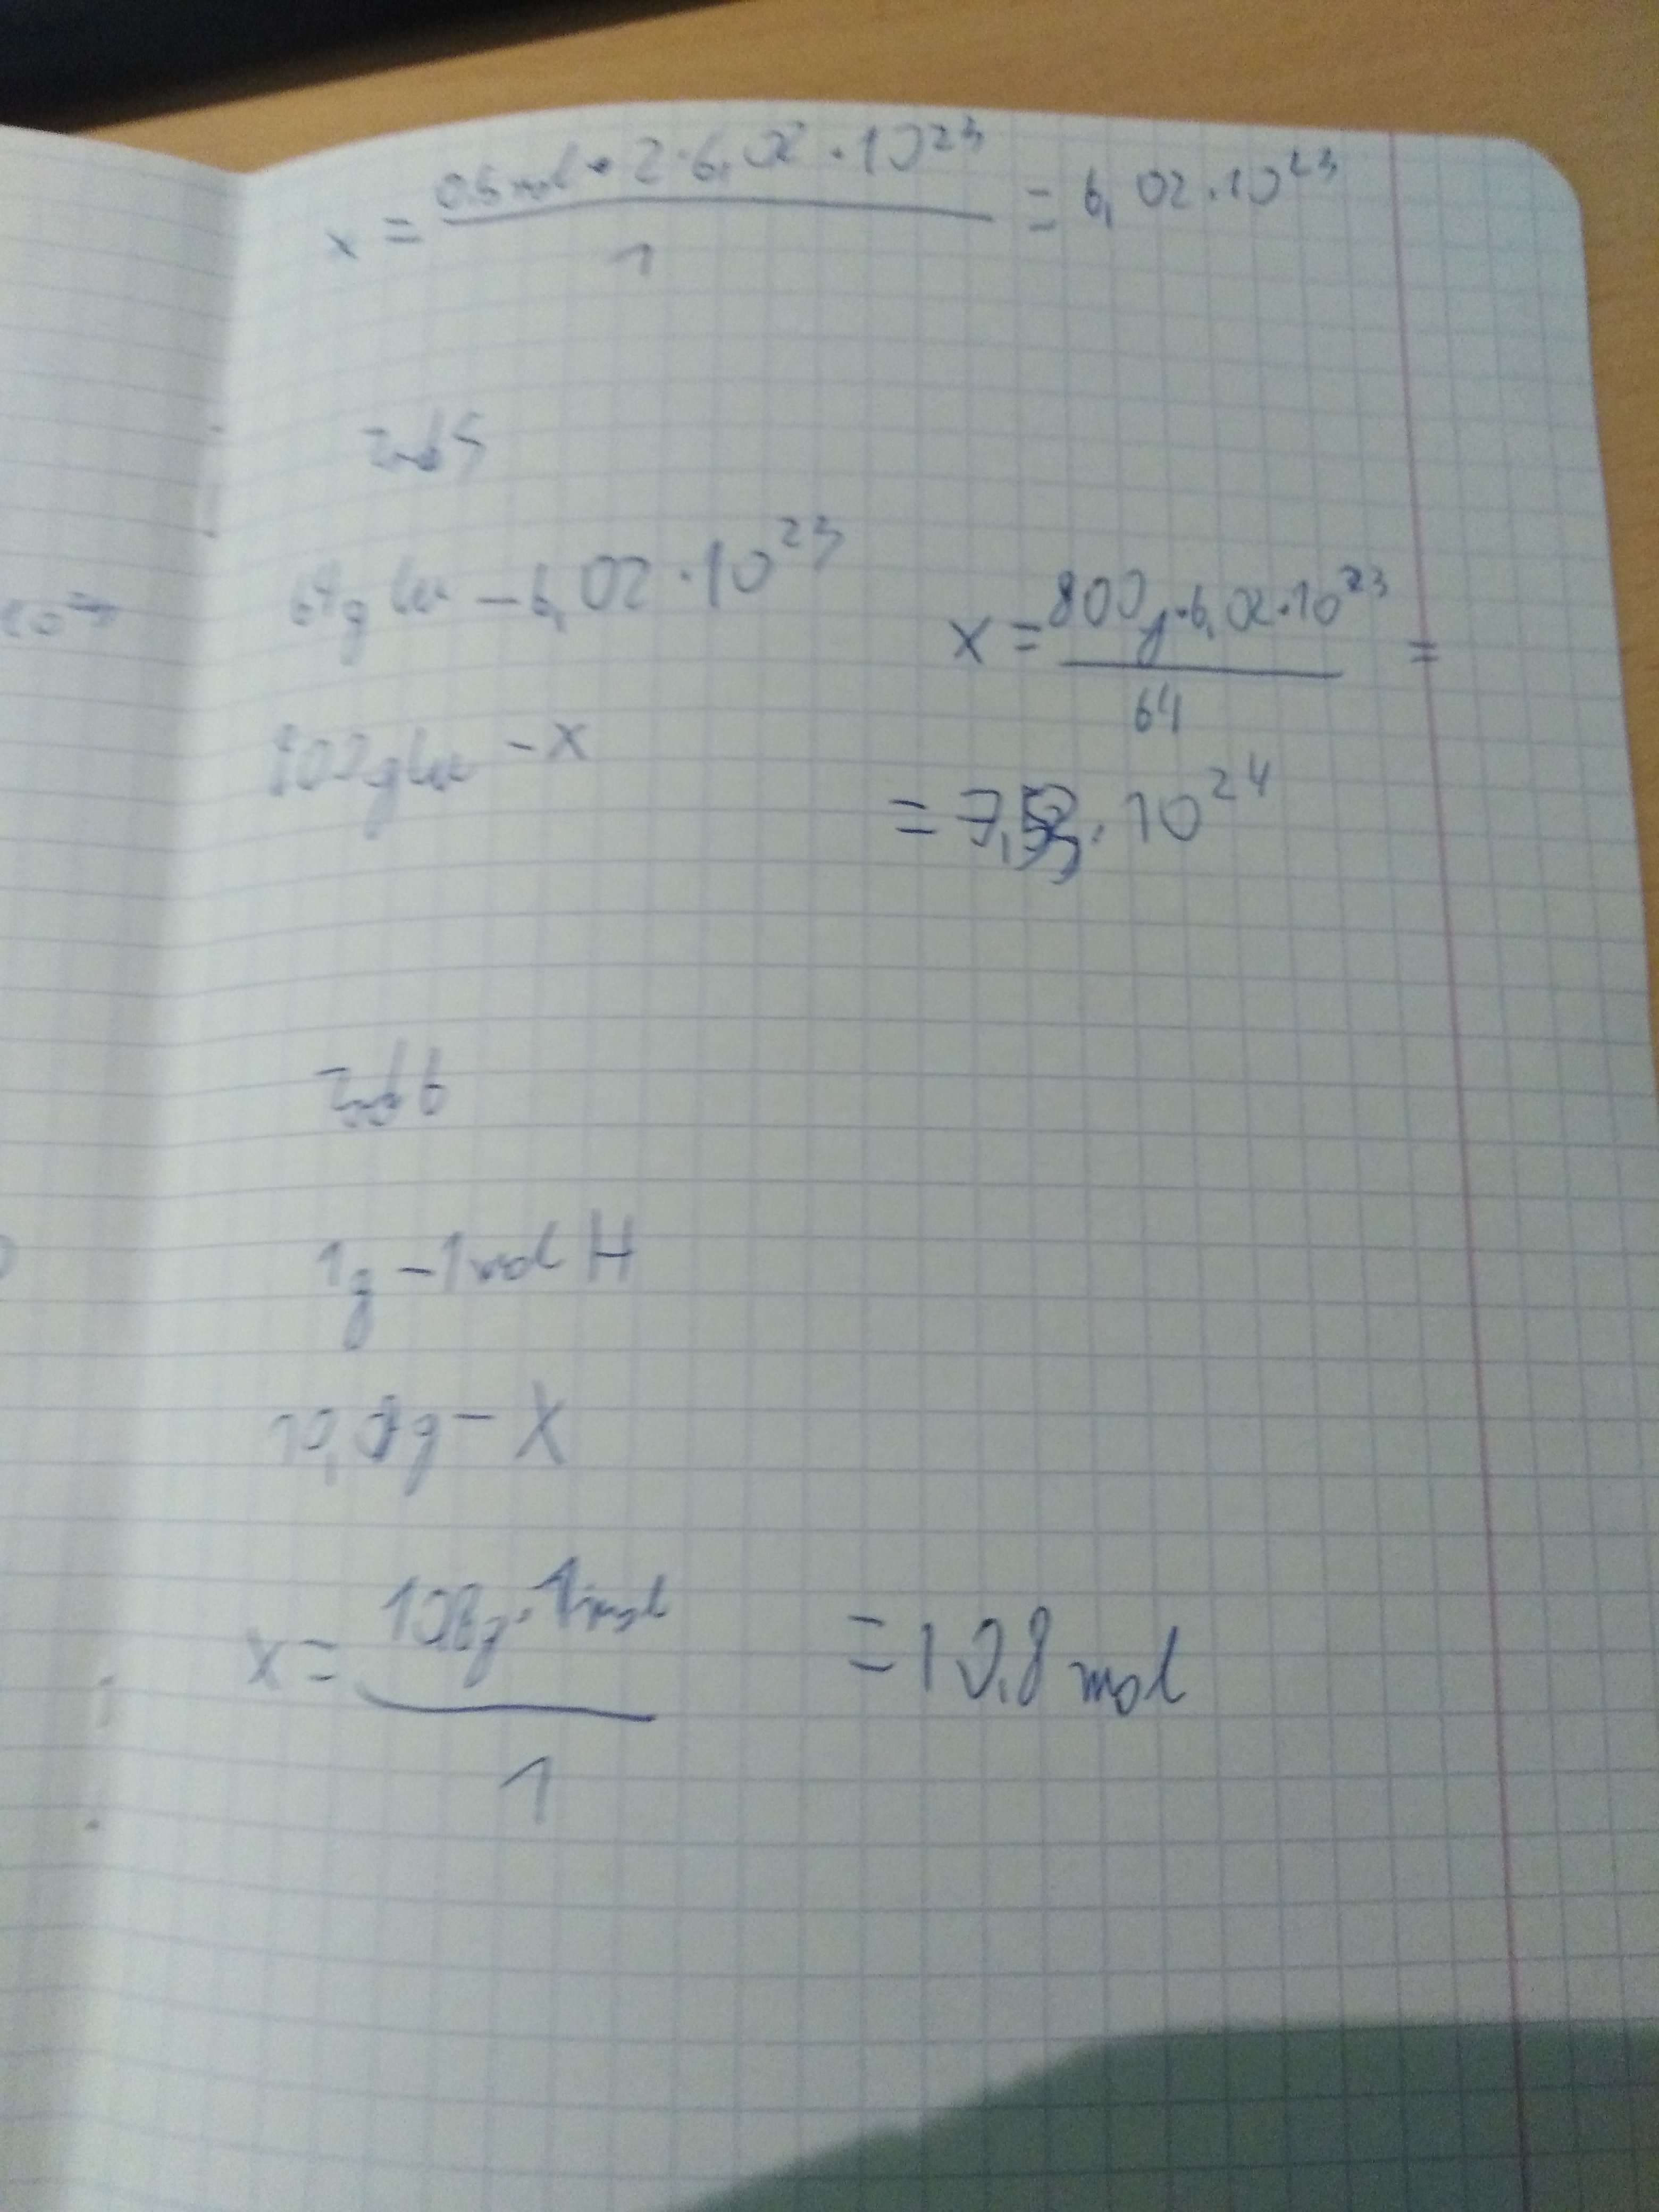 x = 0,5 mol · 2 · 6,02 · 10²³ / 1 = 6,02 · 10²³
zad 5
64g Cu – 6,02 · 10²³
800g Cu – x
x = 800g · 6,02 · 10²³ / 64 =
= 7,53 · 10²⁴
zad 6
1g – 1 mol H
10,8g – X
x = 10,8g · 1 mol / 1 = 10,8 mol